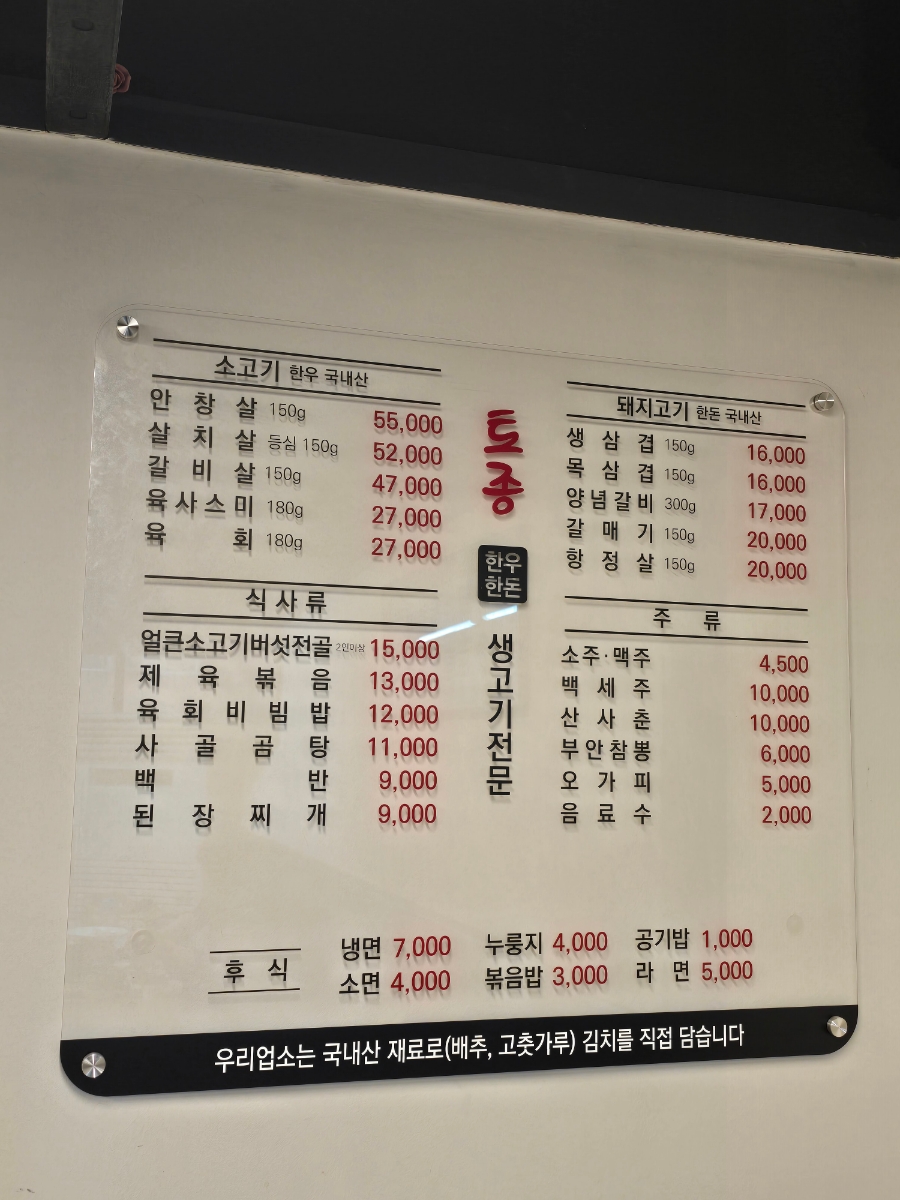 소고기 한우 국내산
안창살 150g 55,000
살치살 등심 150g 52,000
갈비살 150g 47,000
육사스미 180g 27,000
육회 180g 27,000
식사류
얼큰소고기버섯전골 2인이상 15,000
제육볶음 13,000
육회비빔밥 12,000
사골곰탕 11,000
백반 9,000
된장찌개 9,000
토종
한우
한돈
생고기전문
돼지고기 한돈 국내산
생삼겹 150g 16,000
목삼겹 150g 16,000
양념갈비 300g 17,000
갈매기 150g 20,000
항정살 150g 20,000
주류
소주·맥주 4,500
백세주 10,000
산사춘 10,000
부안참뽕 6,000
오가피 5,000
음료수 2,000
후식
냉면 7,000 누룽지 4,000 공기밥 1,000
소면 4,000 볶음밥 3,000 라면 5,000
우리업소는 국내산 재료로(배추, 고춧가루) 김치를 직접 담습니다